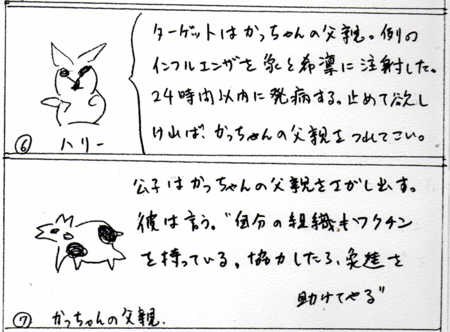 ターゲットはかっちゃんの父親。例の
インフルエンザを象と希凛に注射した。
24時間以内に発病する。止めて欲し
ければ、かっちゃんの父親をつれてこい。
⑥ ハリー
公子はかっちゃんの父親をさがし出す。
彼は言う。"自分の組織もワクチン
を持っている。協力したら、象進を
助けてやる"
⑦ かっちゃんの父親.